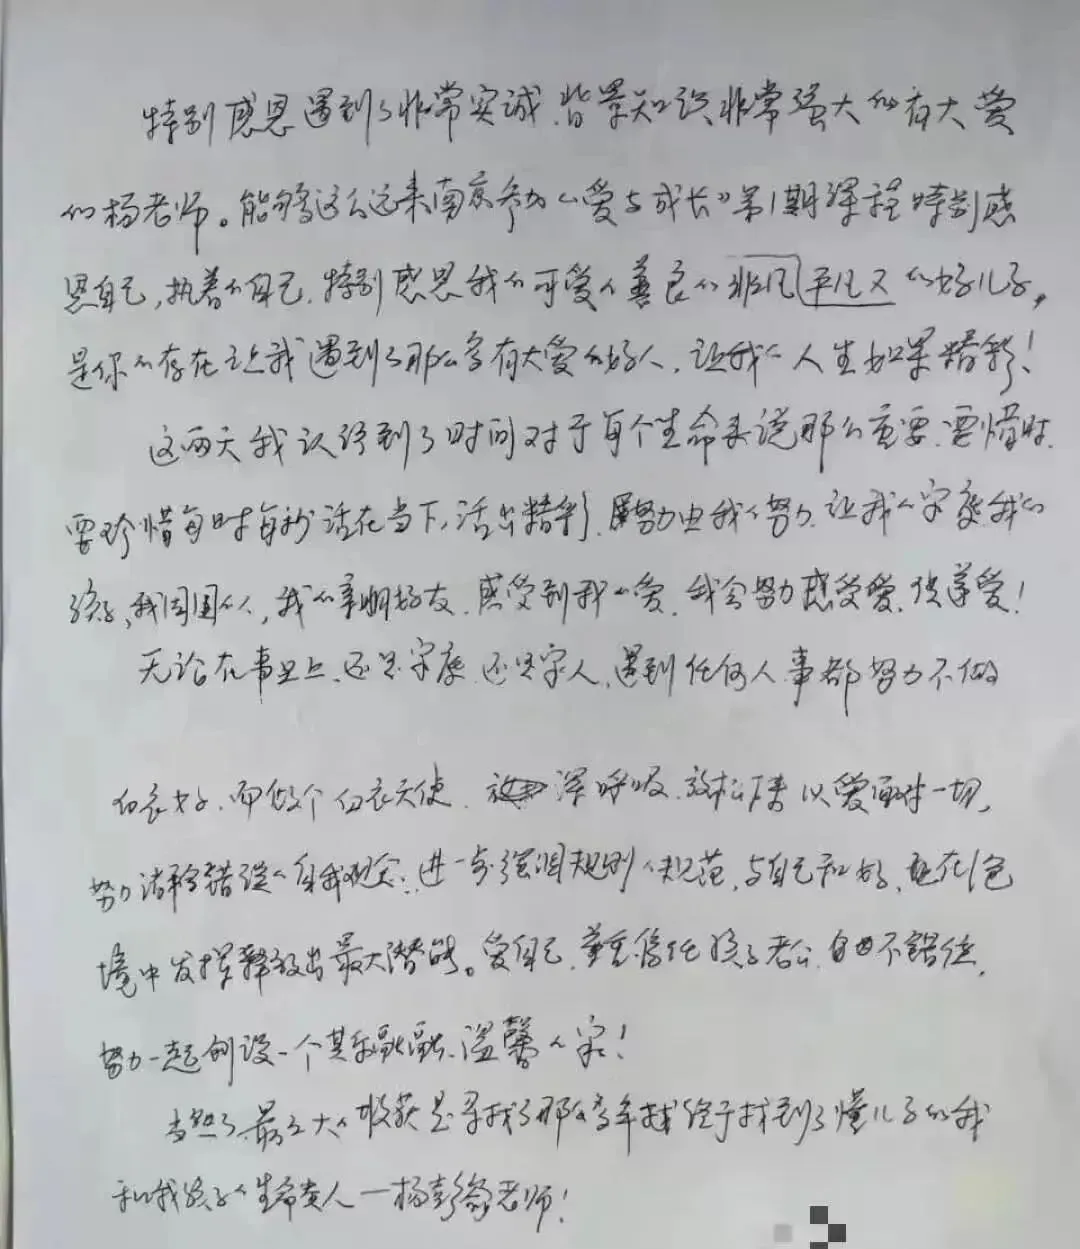 特别感恩遇到了非常实诚、背景知识非常强大的有大爱
的杨老师。能够这么远来南京参加《爱与成长》第1期课程特别感
恩自己,执着的自己,特别感恩我的可爱的善良的非凡平凡又的好儿子,
是你的存在让我遇到了那么多有大爱的好人,让我的人生如此精彩!
这两天我认识到了时间对于每个生命来说那么重要,要惜时
要珍惜每时每秒活在当下,活出精彩,努力由我的努力,让我的家庭我的
孩子,我周围的人,我的亲朋好友,感受到我的爱,我会努力感受爱,传递爱!
无论在事业上,还是家庭,还是家人,遇到任何人事都努力不做
白衣 ,而做个白衣天使,深呼吸,放松下来以爱面对一切,
努力 错误的自我观念,进一步强调规则的规范,与自己和好,要在 色
境中发挥释放出最大潜能。爱自己,尊重信任孩子老公,自由不错位,
努力一起创设一个其乐融融、温馨的家!
当然了,最大的收获是寻找了那么多年 终于找到了懂儿子的我
和我孩子的生命贵人—杨 老师!